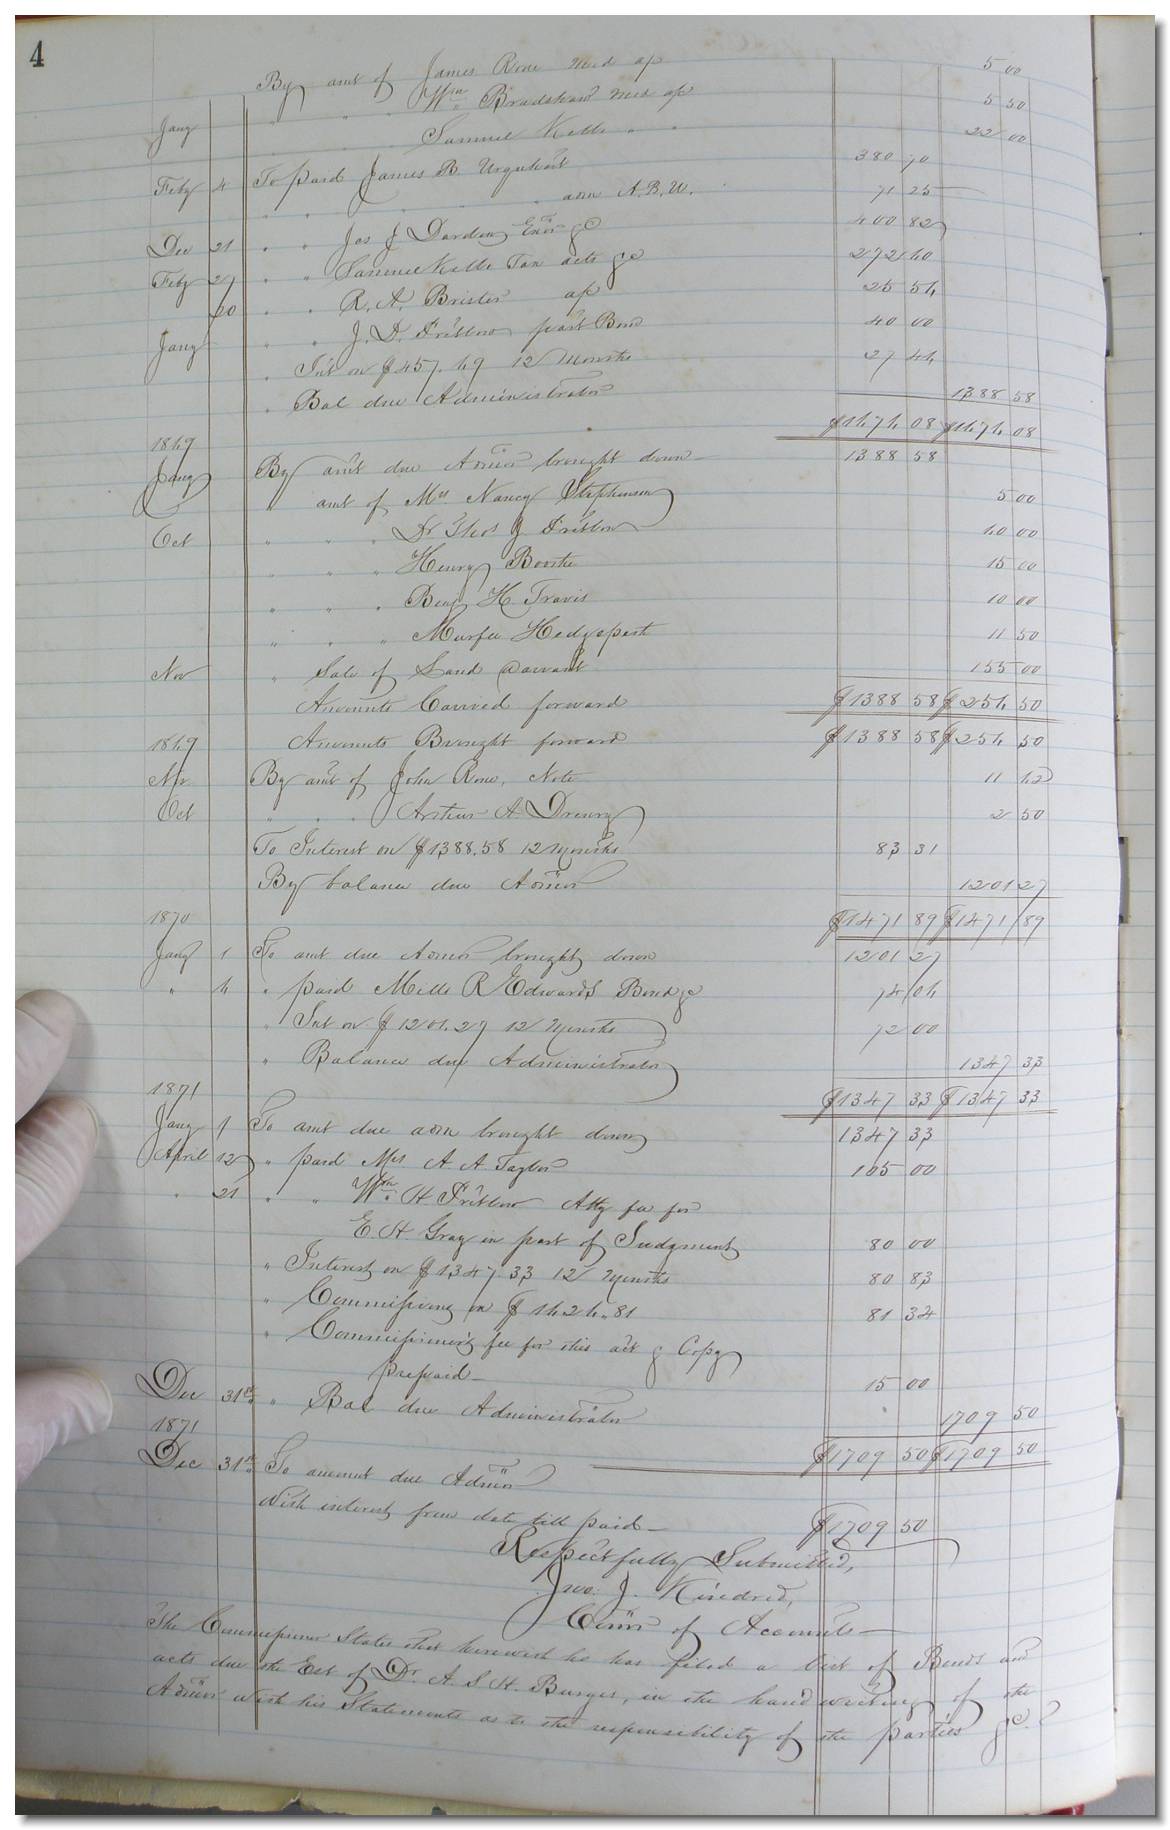 4
By amt of James Rose Med ap 5 00
" " " Wm Bradshaw Med ap 5 50
Jany Samuel Kello " " 22 00
Feby 4 To paid James B. Urquhart 380 70
" " " " " adm A.B.U. 71 25
Dec 21 " " Jas J Darden Exor &c 400 82
Feby 27 " " Samuel Kello Tax acts &c 272 40
20 " " R. A. Brister ap 25 54
Jany " " J. D. Pretlow part Bond 40 00
" Int on $457.49 12 Months 27 44
" Bal due Administrator 1388 58
$1474 08 $1474 08
1849
Jany By amt due Admor brought down 1388 58
" amt of Mrs Nancy Stephenson 5 00
Oct " " " Dr Thos J Pretlow 40 00
" " " Henry Boothe 15 00
" " " Benj H Travis 10 00
" " " Hedgepeth 11 50
Nov " Sale of Land Warrant 155 00
Amounts Carried forward $1388 58 $254 50
1849 Amounts Brought forward $1388 58 $254 50
Nov. By amt of John Rose, Note 11 42
Oct " " " Arthur A Drewry 2 50
To Interest on $1388.58 12 Months 83 31
By balance due Admor 1201 27
1870 $1471 89 $1471 89
Jany 1 To amt due Admor brought down 1201 27
" 4 " paid Mills R Edwards Bond &c 74 04
" Int on $1201.27 12 Months 72 00
" Balance due Administrator 1347 33
1871 $1347 33 $1347 33
Jany 1 To amt due adm brought down 1347 33
April 12 " paid Mrs A A Taylor 105 00
" 21 " " Wm H Pretlow Atty fee for
E. H. Gray in part of Judgment 80 00
" Interest on $1347.33 12 Months 80 83
" Commissions on $1424.81 81 34
" Commissioner's fee for this act & Copy
prepaid— 15 00
Dec 31st " Bal due Administrator 1709 50
1871 $1709 50 $1709 50
Dec 31st To amount due Admor
With interest from date till paid— $1709 50
Respectfully Submitted,
Jno. J. Kindred,
Comr of Accounts—
The Commissioner States that herewith he has filed a list of Bonds and
acts due the Est of Dr. A. S. H. Burges, in the hand writing of the
Admor with his Statements as to the responsibility of the parties &c.